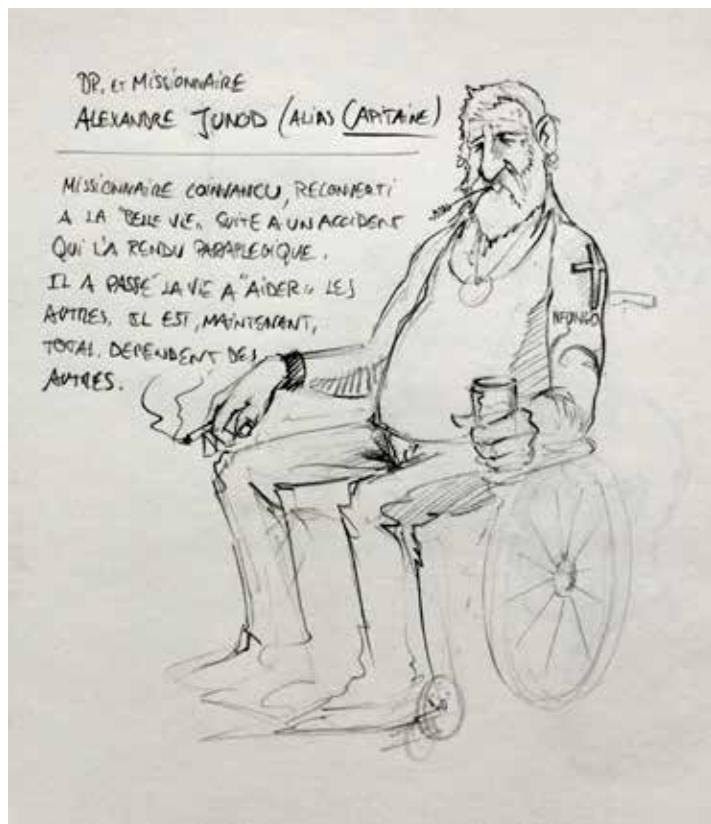 DR. ET MISSIONNAIRE
ALEXANDRE JUNOD (ALIAS CAPITAINE)
MISSIONNAIRE CONVANCU, RECONVERTI
A LA "BELLE VIE" SUITE A UN ACCIDENT
QUI L'A RENDU PARAPLEGIQUE.
IL A PASSÉ LA VIE A "AIDER" LES
AUTRES. IL EST, MAINTENANT,
TOTAL. DEPENDENT DES
AUTRES.